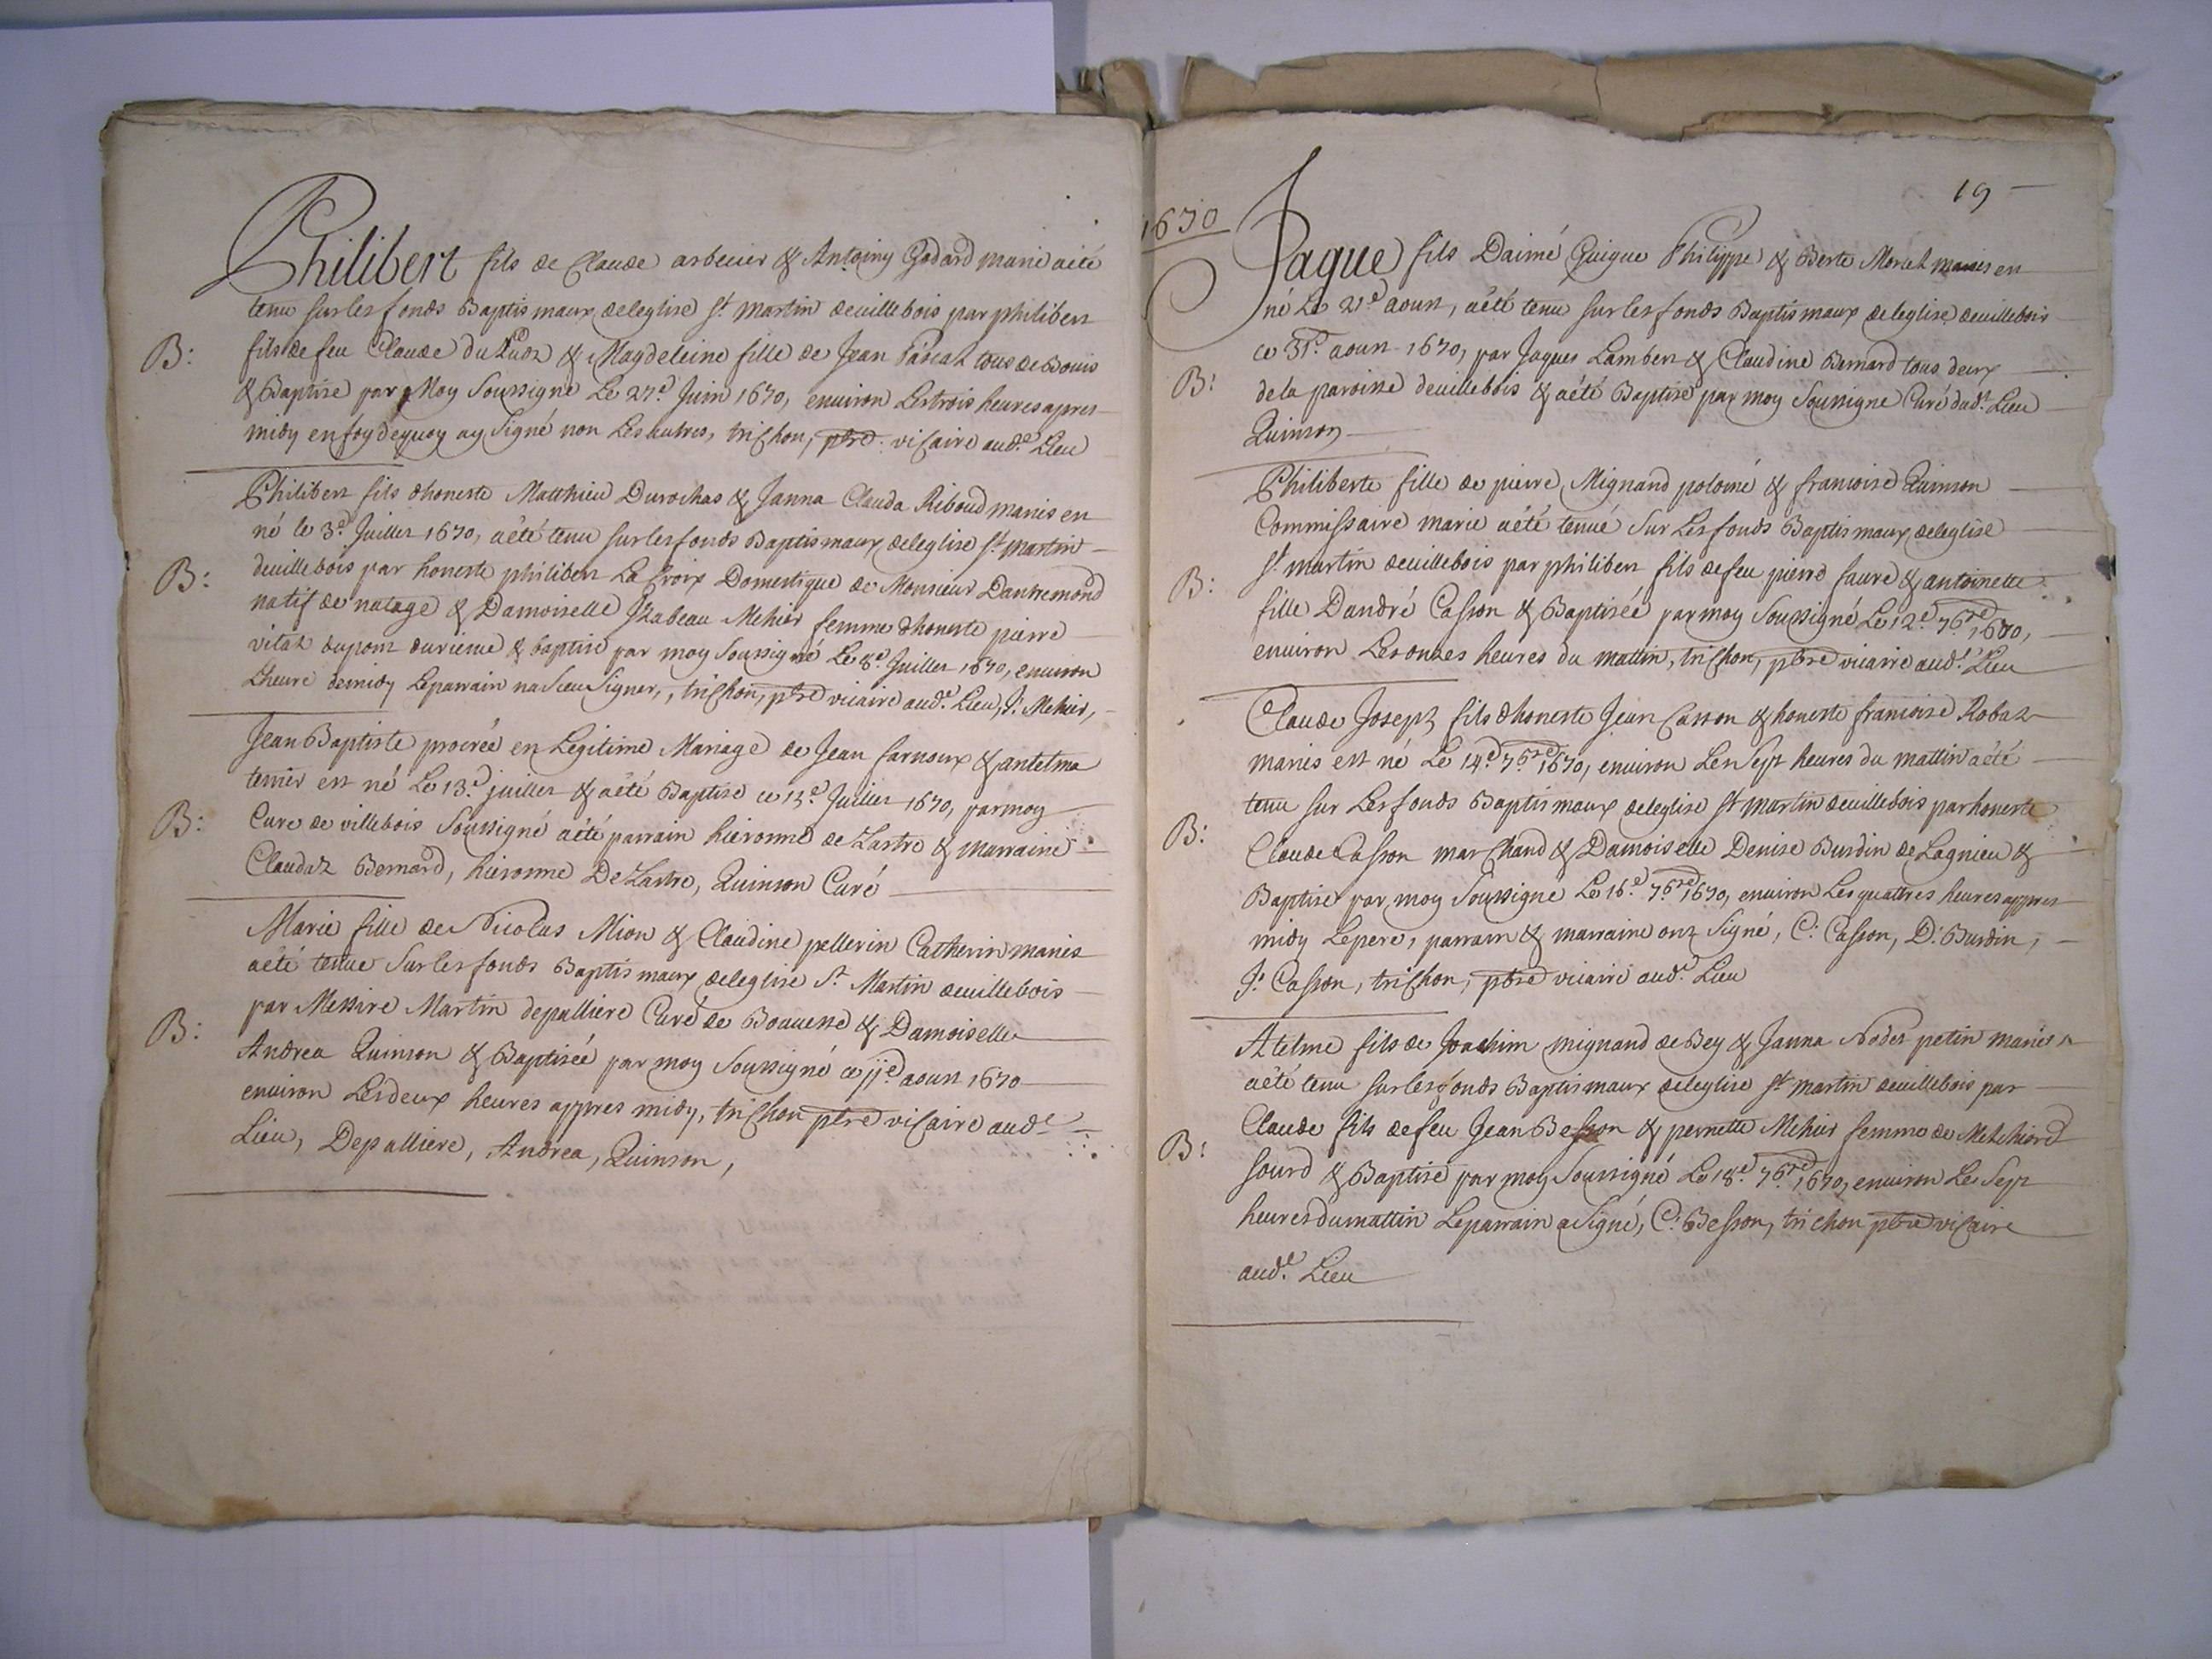 Philibert fils de Claude arbeuier & Antoiny Godard marie aété
tenu sur les fonds Baptismaux deleglise st. martin deuillebois par philibert
B: fils de feu Claude du & Magdeleine fille de Jean Pascal tous de Bouis
& Baptise par Moy Soussigné Le 27e. Juin 1670, enuiron Les trois heures apres
midy en foy dequoy ay Signé non Les autres, trichon, ptre. vicaire aude. Lieu
Philibert fils dhoneste Matthieu Durochas & Janna Clauda Riboud maries en
né le 3e. Juillet 1670, aété tenu sur les fonds Baptismaux deleglise st. martin
B: deuillebois par honeste philibert La Croix Domestique de Monsieur Dantremond
natif de natage & Damoiselle Izabeau Mehier femme dhoneste pierre
vital dupont & baptise par moy Soussigné Le 8e. Juillet 1670, enuiron
Lheure demidy Leparrain na Sceu Signer,, trichon, ptre vicaire aude. Lieu, J. Mehier,
Jean Baptiste procréé en Legitime Mariage de Jean farnoux & antelma
tenier est né Le 13e. juillet & aété Baptise ce 13e. Juillet 1670, par moy
B: Cure de villebois Soussigné aété parrain hieronme de Lastre & marraine
Claudaz Bernard, hieronme De Lastre, Quinson Curé
Marie fille de Nicolas Mion & Claudine pellerin Catherin maries
aété tenue Sur les fonds Baptismaux deleglise St. Martin deuillebois
B: par Messire Martin depalliere Curé de Bouuesse & Damoiselle
Andrea Quinson & Baptiséé par moy Soussigné ce jje. aoust 1670
enuiron Les deux heures appres midy, trichon ptre vicaire aude.
Lieu, Depalliere, Andrea, Quinson,
19
1670
Jaque fils Daimé Guigue Philippe & Berte Morel maries en
né Le 21e. aoust, aété tenu sur les fonds Baptismaux deleglise deuillebois
ce 31e. aoust 1670, par Jaques Lambert & Claudine Bernard tous deux
B: dela paroisse deuillebois & aété Baptisé par moy Soussigne Curé dudt. Lieu
Quinson
Philiberte fille de pierre Mignand poloiné & francoise Quinson
Commissaire marie aété tenué Sur Les fonds Baptismaux deleglise
B: st. martin deuillebois par philibert fils defeu pierre faure & antoinette
fille Dandré Casson & Baptiséé par moy Soussigné Le 12e. 7bre. 1670,
enuiron Les onzes heures du mattin, trichon, ptre vicaire aude. Lieu
Claude Joseph fils dhoneste Jean Casson & honeste francoise Robat
maries est né Le 14e. 7bre. 1670, enuiron Les Sept heures du mattin aété
tenu sur Les fonds Baptismaux deleglise st martin deuillebois par honeste
B: Claude Casson marchand & Damoiselle Denise Burdin de Lagnieu &
Baptise par moy Soussigne Le 16e. 7bre. 1670, enuiron Les quattres heures appres
midy Lepere, parrain & marraine ont Signé, C: Casson, D: Burdin,
J: Casson, trichon, ptre vicaire aude. Lieu
Atelme fils de Joachim mignand de Bey & Janna Nodet petin maries
aété tenu sur les fonds Baptismaux deleglise st martin deuillebois par
B: Claude fils defeu Jean Besson & pernette Mehier femme de Melchiord
sourd & Baptisé par moy Soussigné Le 18e. 7bre. 1670, enuiron Les Sept
heures du mattin Leparrain a Signé, C: Besson, trichon ptre vicaire
aude. Lieu